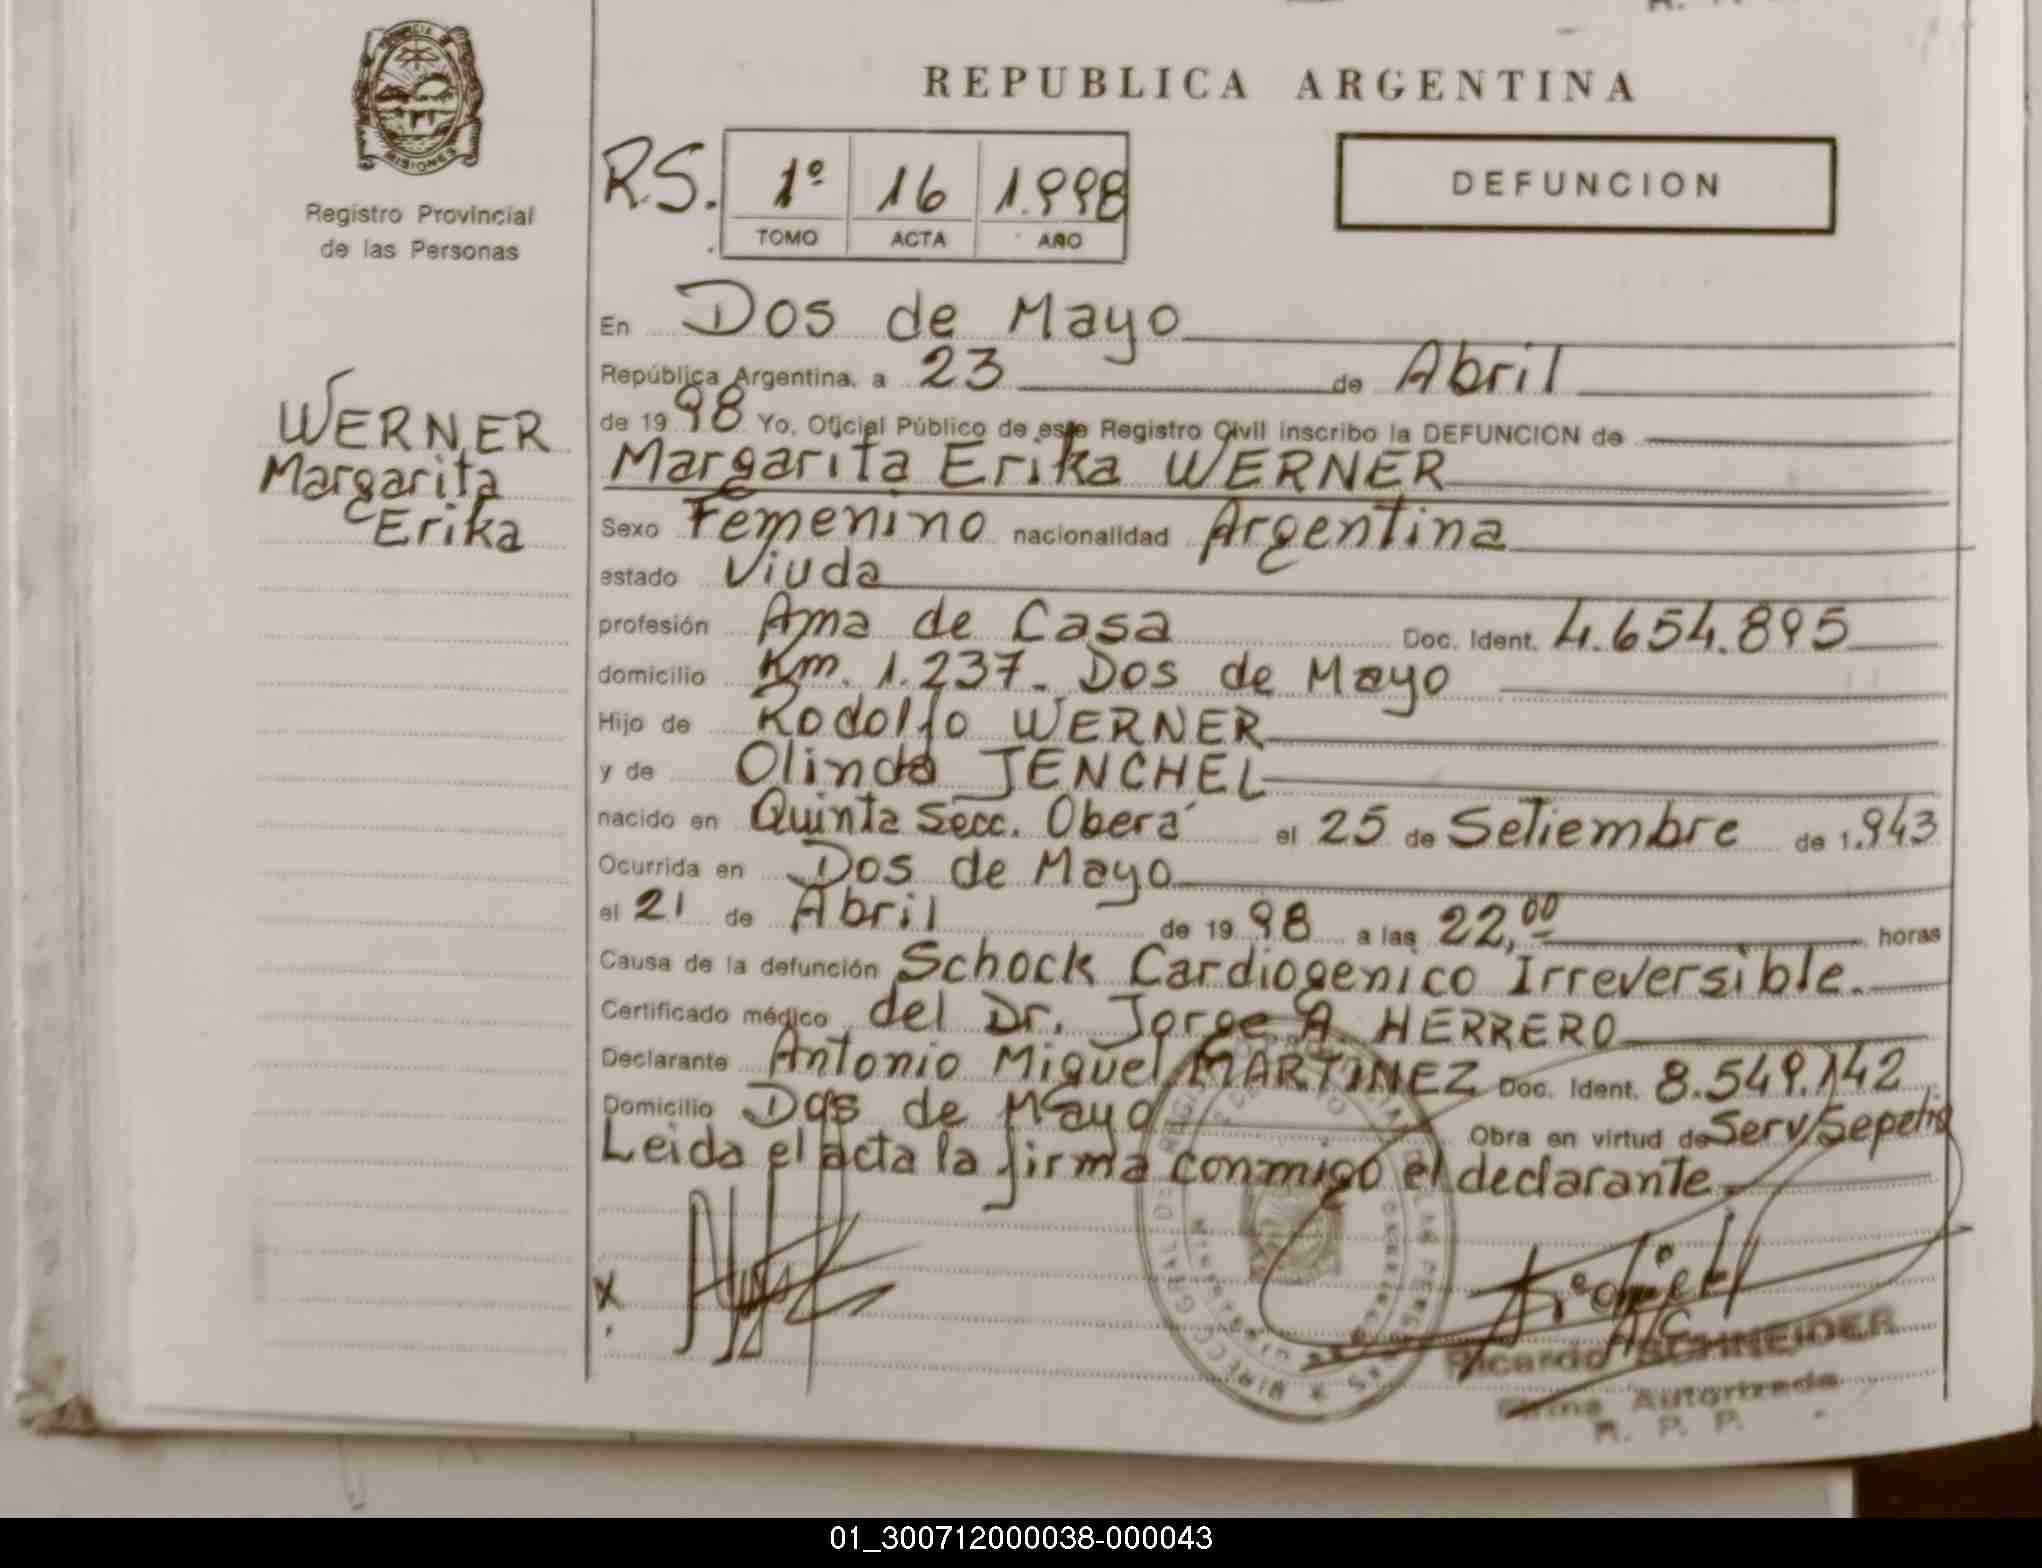 PROVINCIA DE
MISIONES
Registro Provincial
de las Personas
REPUBLICA ARGENTINA
R.S. 1º 16 1.998
TOMO ACTA AÑO
DEFUNCION
WERNER
Margarita
Erika
En Dos de Mayo
República Argentina, a 23 de Abril
de 1998 Yo, Oficial Público de este Registro Civil inscribo la DEFUNCION de
Margarita Erika WERNER
Sexo Femenino nacionalidad Argentina
estado Viuda
profesión Ama de Casa Doc. Ident. 4.654.895
domicilio Km. 1.237. Dos de Mayo
Hijo de Rodolfo WERNER
y de Olinda JENCHEL
nacido en Quinta Secc. Oberá el 25 de Setiembre de 1.943
Ocurrida en Dos de Mayo
el 21 de Abril de 1998 a las 22,00 horas
Causa de la defunción Schock Cardiogenico Irreversible.
Certificado médico del Dr. Jorge A. HERRERO
Declarante Antonio Miguel MARTINEZ Doc. Ident. 8.549.142
Domicilio Dos de Mayo Obra en virtud de Serv/Sepelio
Leida el acta la firma conmigo el declarante.
X
Ricardo SCHNEIDER
Firma Autorizada
R. P. P.
01_300712000038-000043